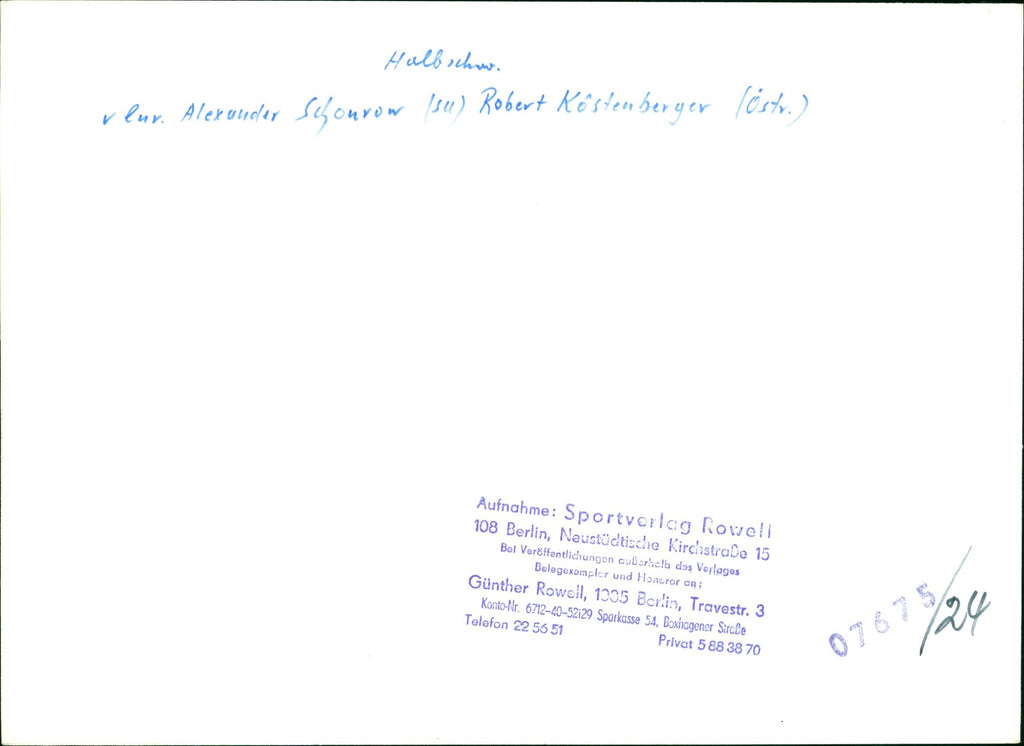 Halbschw.
v lnr. Alexander Schourow (SU) Robert Köstenberger (Östr.)
Aufnahme: Sportverlag Rowell
108 Berlin, Neustädtische Kirchstraße 15
Bei Veröffentlichungen außerhalb des Verlages
Belegexemplar und Honorar an:
Günther Rowell, 1035 Berlin, Travestr. 3
Konto-Nr. 6712-40-52129 Sparkasse 54, Boxhagener Straße
Telefon 22 56 51 Privat 5 88 38 70
07675/24